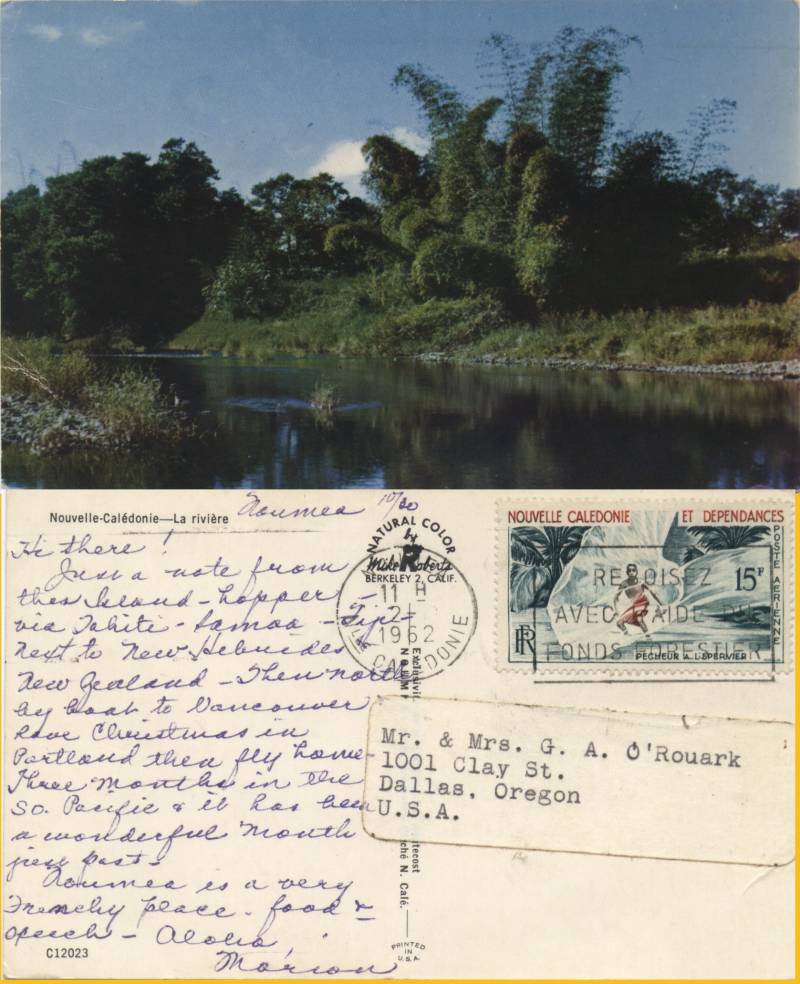 Nouvelle-Calédonie—La rivière
Noumea 10/30
Hi there!
Just a note from
this Island-hopper -
via Tahiti - Samoa - Fiji -
next to New Hebrides
New Zealand - Then north
by boat to Vancouver
have Christmas in
Portland then fly home -
Three months in the
So. Pacific & it has been
a wonderful month
just past -
Noumea is a very
Frenchy place - food &
speech - Aloha,
Marion
C12023
NATURAL COLOR
by
Mike Roberts
BERKELEY 2, CALIF.
11 H
1962
CALEDONIE
Exclusivité
NOUM
ché N. Calé.
PRINTED
IN
U.S.A.
NOUVELLE CALEDONIE ET DEPENDANCES
POSTE AERIENNE
15F
RF
PECHEUR A L'EPERVIER
REBOISEZ
AVEC L'AIDE DU
FONDS FORESTIER
Mr. & Mrs. G. A. O'Rouark
1001 Clay St.
Dallas, Oregon
U.S.A.